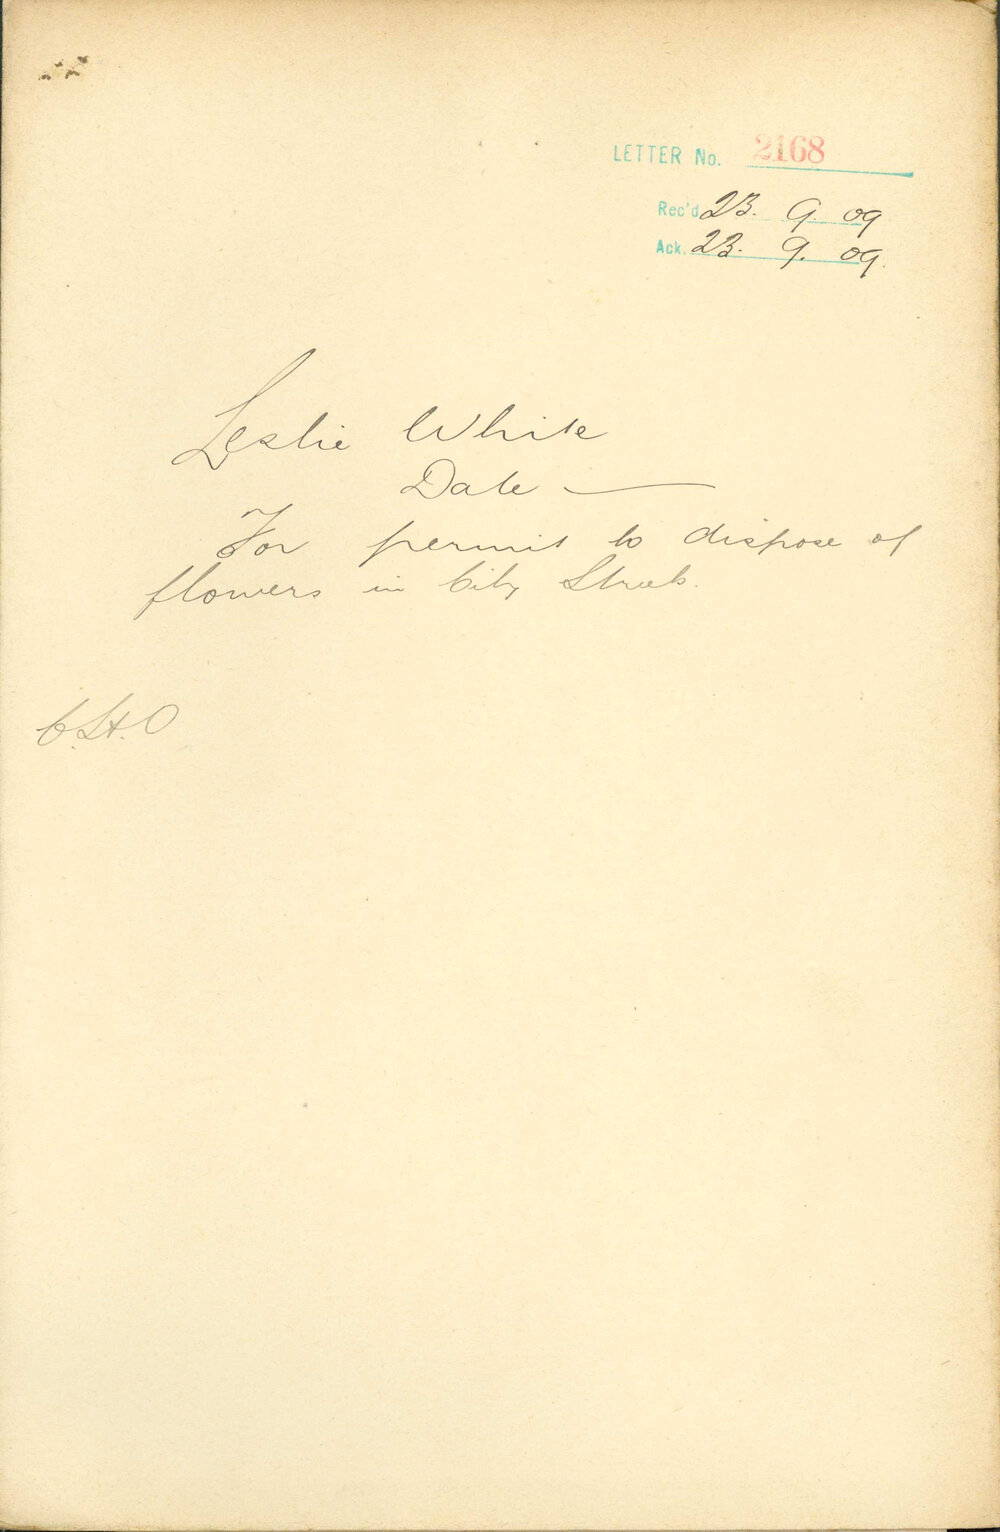 LETTER No. 2168
Rec'd 23. 9. 09
Ack. 23. 9. 09.
Leslie White
Date —
For permit to dispose of
flowers in City Streets.
C.H.O